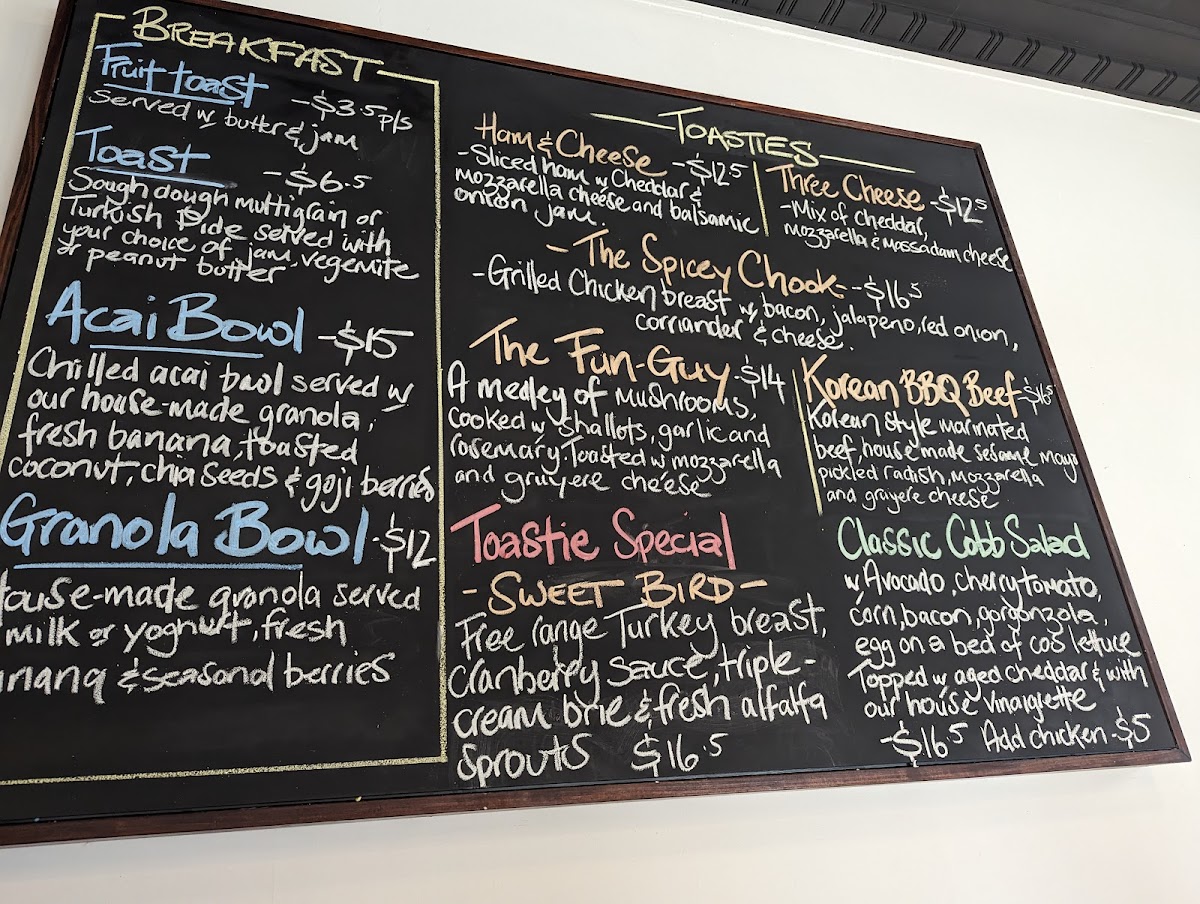 BREAKFAST
Fruit toast -$3.5 p/s
Served w/ butter & jam
Toast -$6.5
Sough dough multigrain or
Turkish Pide served with
your choice of jam, vegemite
or peanut butter
Acai Bowl -$15
Chilled acai bowl served w/
our house-made granola,
fresh banana, toasted
coconut, chia seeds & goji berries
Granola Bowl -$12
ouse-made granola served
milk or yoghurt, fresh
nana & seasonal berries
TOASTIES
Ham & Cheese -$12.5
-Sliced ham w/ Cheddar &
mozzarella cheese and balsamic
onion jam.
Three Cheese -$12.5
-Mix of cheddar,
Mozzarella & Massadam cheese
-The Spicey Chook- -$16.5
-Grilled Chicken breast w/ bacon, jalapeno, red onion,
corriander & cheese.
The Fun-Guy -$14
A medley of mushrooms,
cooked w/ shallots, garlic and
rosemary. Toasted w/ mozzarella
and gruyere cheese
Korean BBQ Beef -$16.5
Korean style marinated
beef, house made sesame mayo
pickled radish, mozzarella
and gruyere cheese
Toastie Special
-SWEET BIRD-
Free range Turkey breast,
cranberry sauce, triple-
cream brie & fresh alfalfa
sprouts $16.5
Classic Cobb Salad
w/ Avocado, cherry tomato,
corn, bacon, gorgonzola,
egg on a bed of cos lettuce
Topped w/ aged cheddar & with
our house vinaigrette
-$16.5 Add chicken -$5